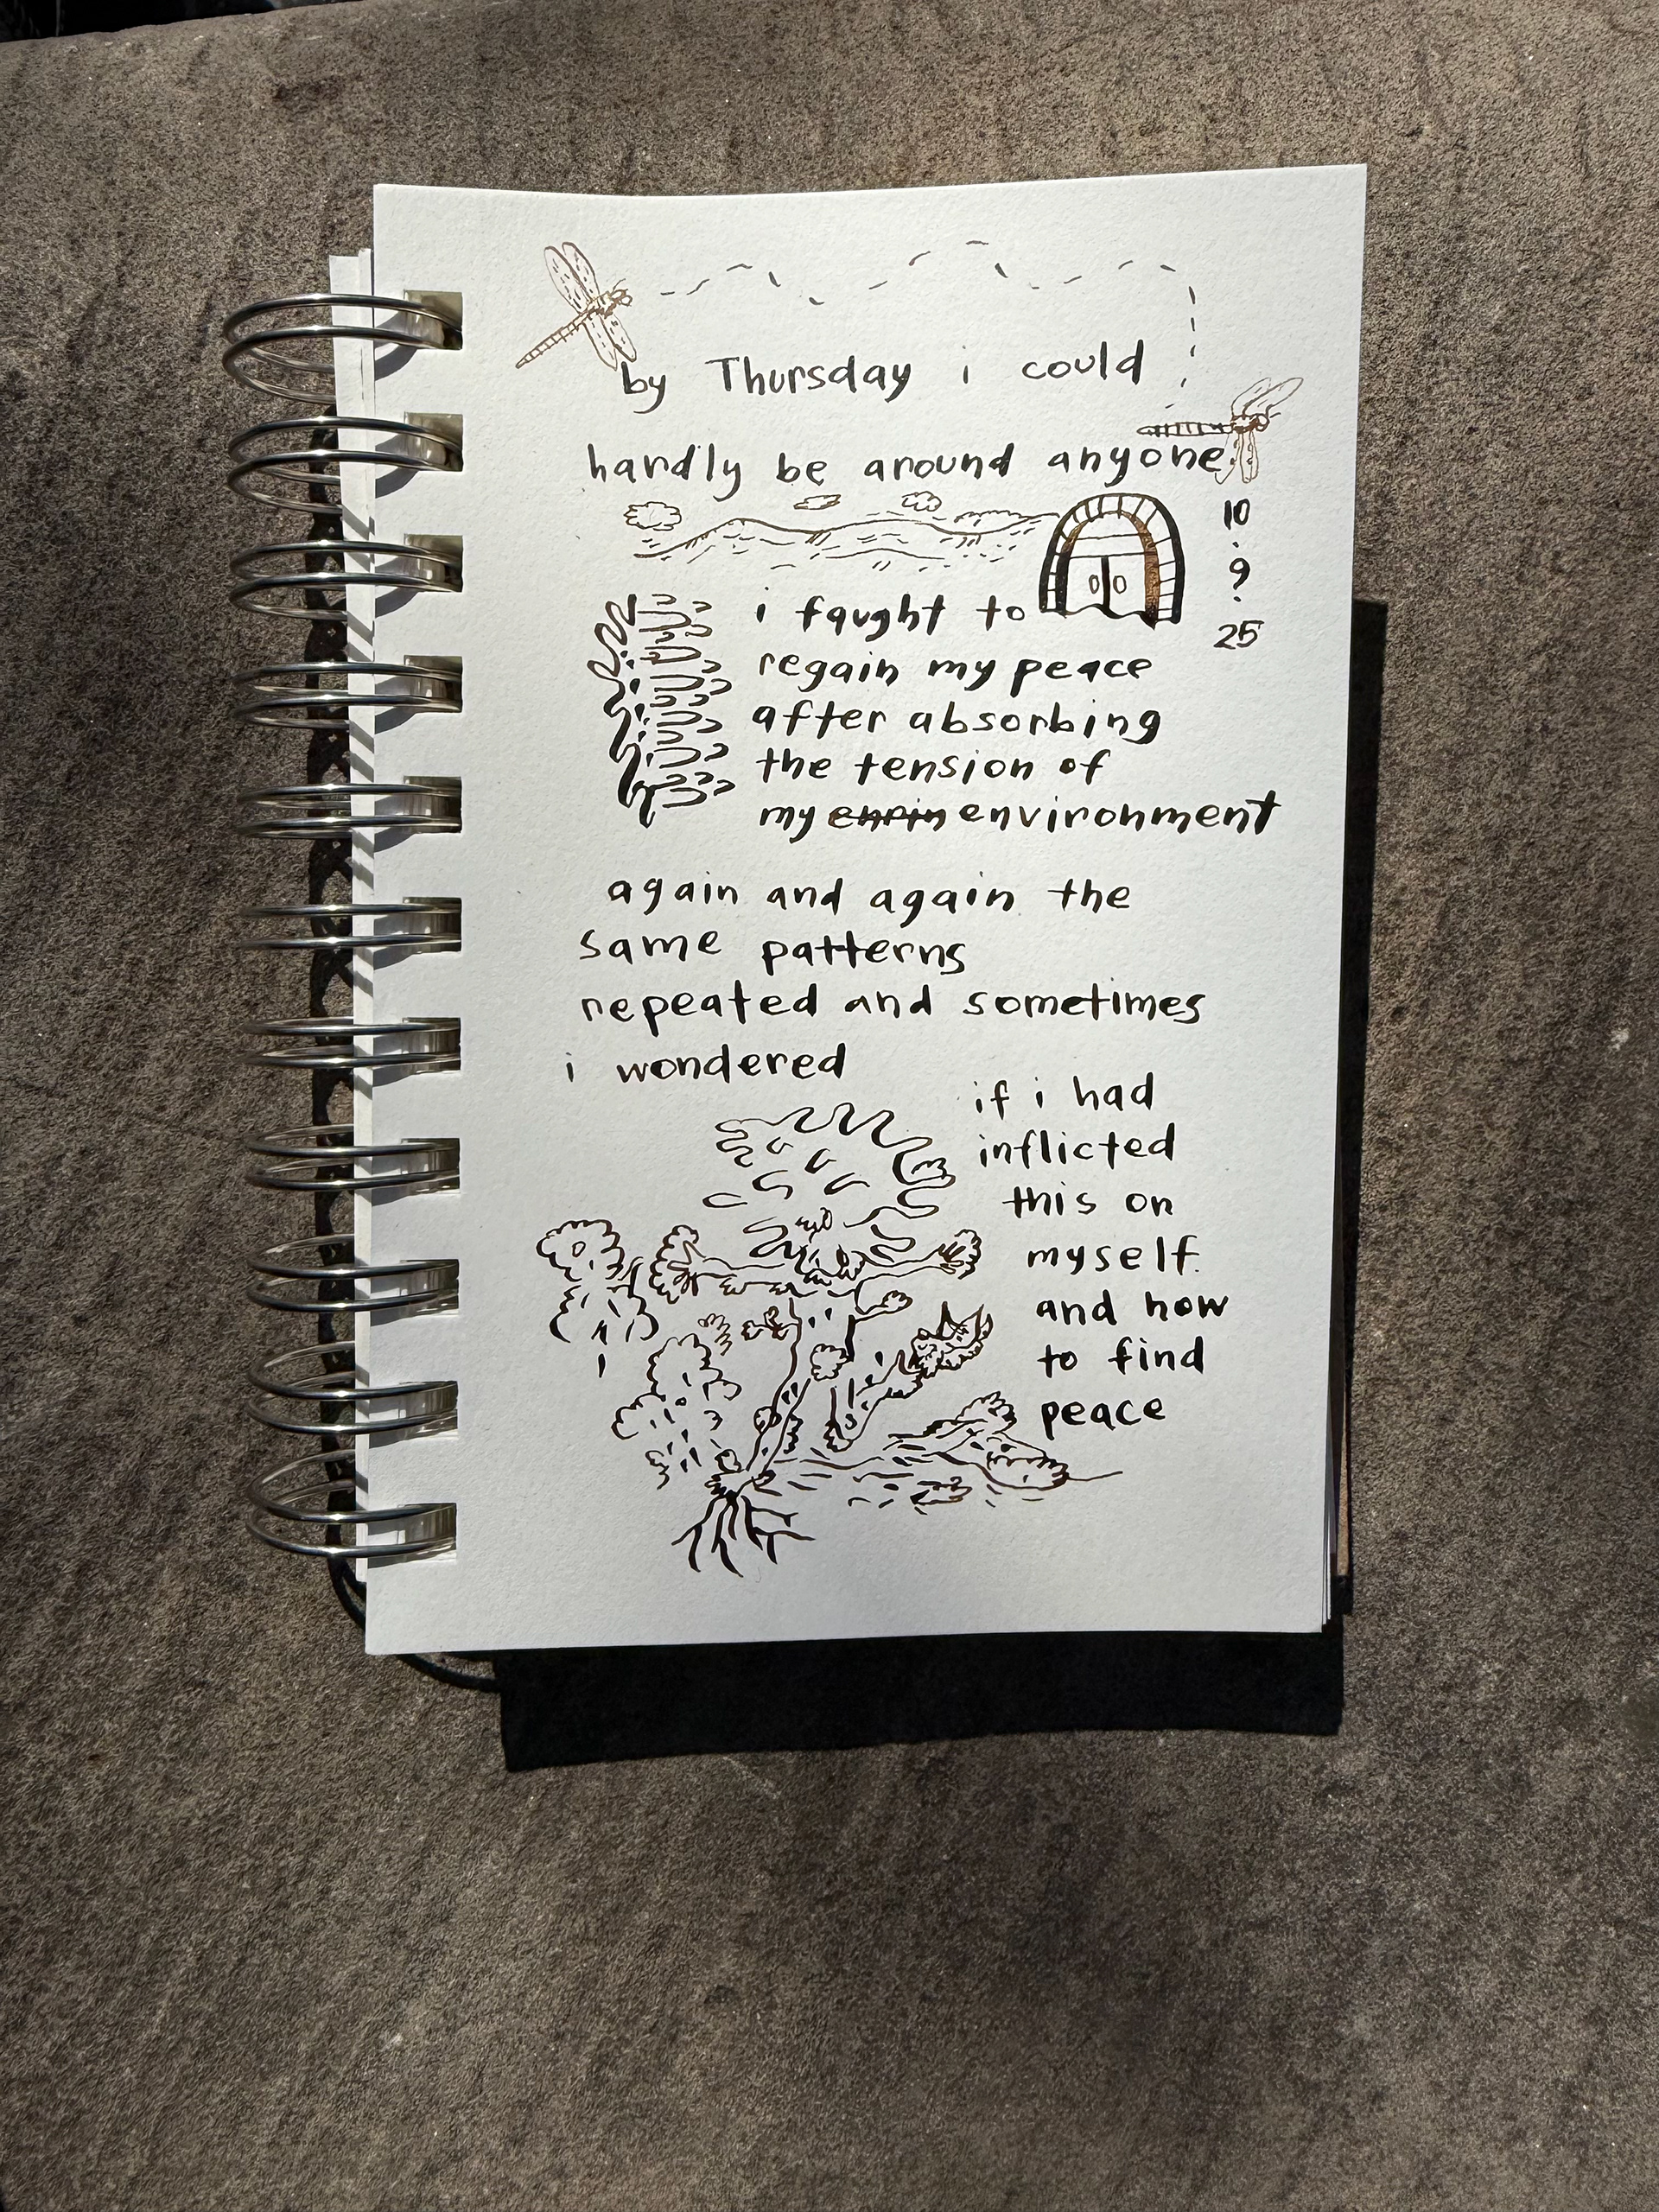 by Thursday i could
hardly be around anyone.
10
.
9
.
25
i faught to
regain my peace
after absorbing
the tension of
my environment
again and again the
same patterns
repeated and sometimes
i wondered
if i had
inflicted
this on
myself.
and how
to find
peace